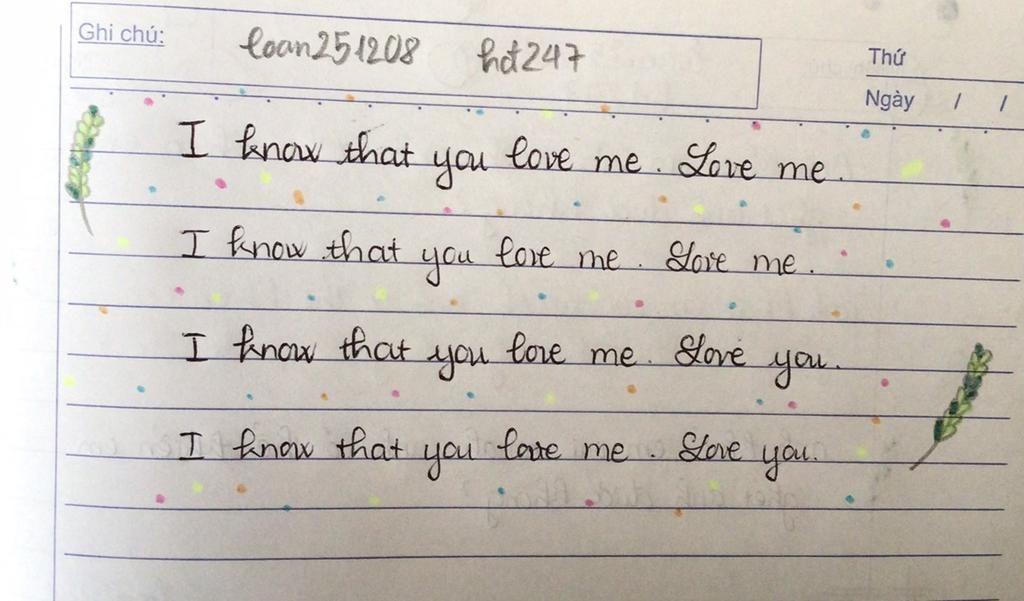 Ghi chú: loan251208 hdt247
Thứ
Ngày / /
I know that you love me. Love me.
I know that you love me. Love me.
I know that you love me. Love you.
I know that you love me. Love you.